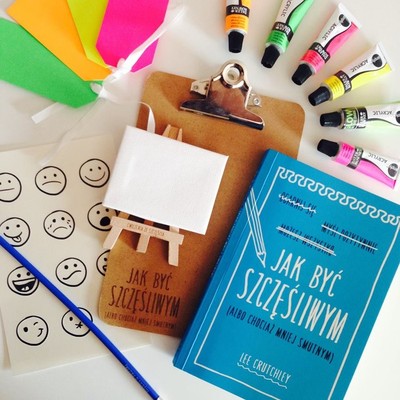 ACRYLIC
ACRYLIC
ACRYLIC
ACRYLIC
JAK BYĆ
SZCZĘŚLIWYM
(ALBO CHOCIAŻ MNIEJ SMUTNYM)
MYŚL POZYTYWNIE
JAK BYĆ
SZCZĘŚLIWYM
(ALBO CHOCIAŻ MNIEJ SMUTNYM)
LEE CRUTCHLEY